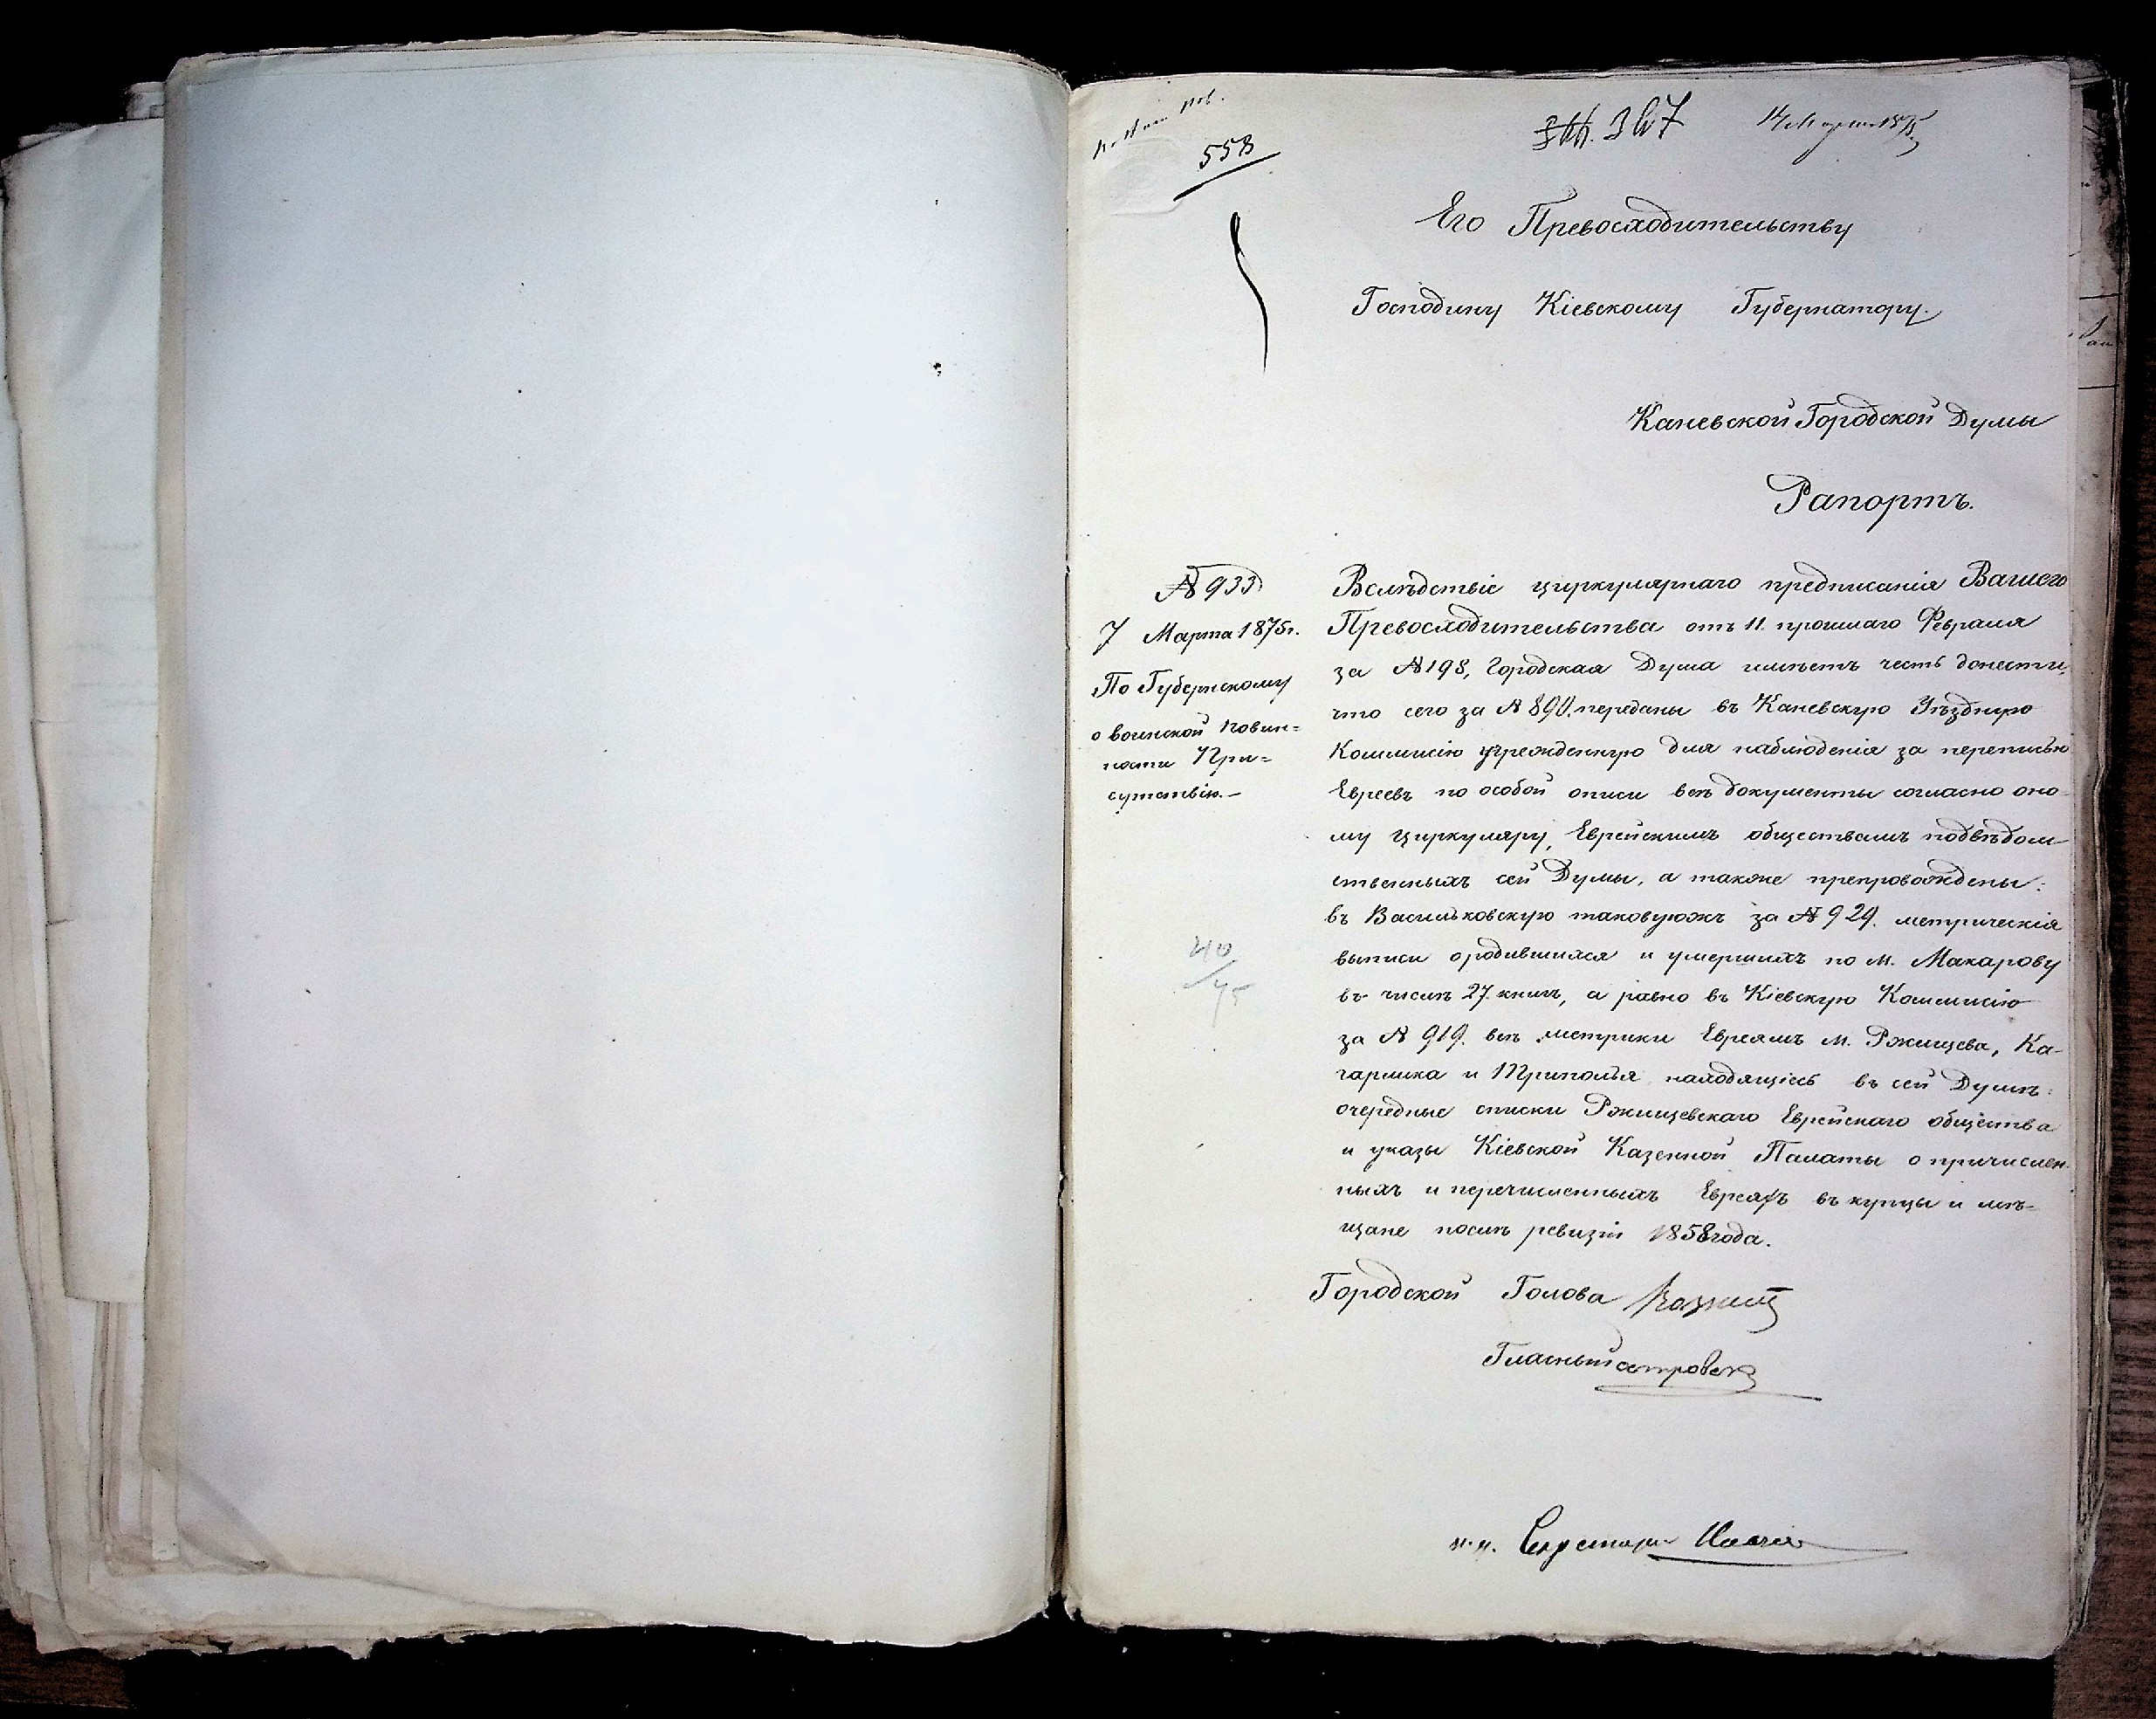 553
367
14 Марта 1875
Его Превосходительству
Господину Кіевскому Губернатору.
Каневской Городской Думы
Рапортъ.
№ 933
7 Марта 1875 г.
По Губернскому
о воинской повин=
ности При=
сутствію.—
40
75
Вслѣдствіе циркулярнаго предписанія Вашего
Превосходительства отъ 11. прошлаго Февраля
за № 198, Городская Дума имѣетъ честь донести,
что сего за № 890. переданы въ Каневскую Уѣздную
Коммисію учрежденную для наблюденія за переписью
Евреевъ по особой описи всѣ документы согласно оно-
му циркуляру, Еврейскимъ обществамъ подвѣдом-
ственныхъ сей Думы, а также препровождены:
въ Васильковскую таковуюжъ за № 929. метрическія
выписи о родившихся и умершихъ по м. Макарову
въ числѣ 27. книгъ, а равно въ Кіевскую Коммисію
за № 919. всѣ метрики Евреямъ м. Ржищева, Ка-
гарлика и Триполья находящіесь въ сей Думѣ:
очередные списки Ржищевскаго Еврейскаго общества
и указы Кіевской Казенной Палаты о причислен-
ныхъ и перечисленныхъ Евреяхъ въ купцы и мѣ=
щане послѣ ревизіи 1858 года.
Городской Голова
Гласный
и. д. Секретаря